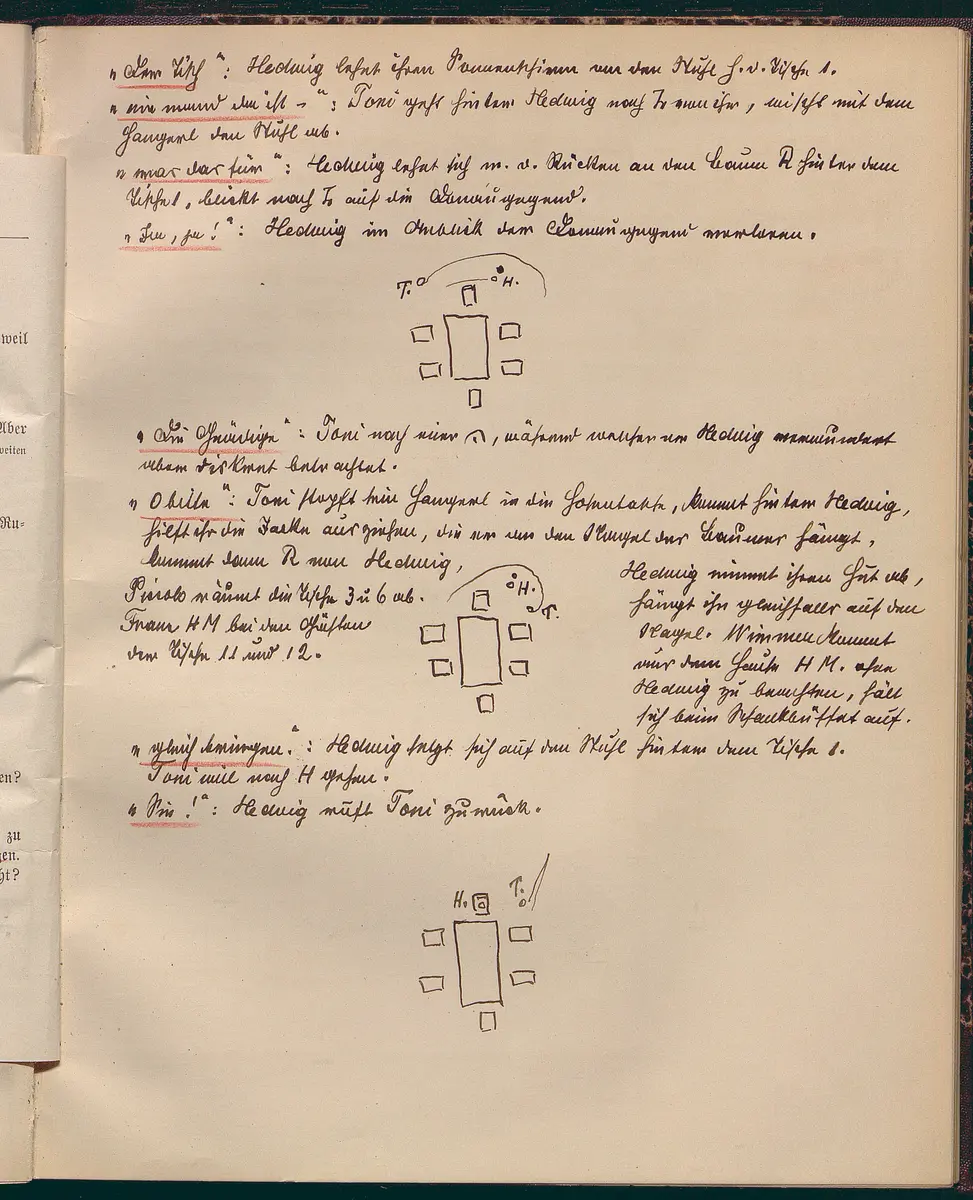 weil
Aber
weiten
Ru-
en?
zu
gen.
ht?
„Der Tisch“: Hedwig lehnt ihren Sonnenschirm an den Stuhl h. d. Tische 1.
„wie wenn da ist –“: Toni geht hinter Hedwig nach L von ihr, wischt mit dem
Hangerl den Stuhl ab.
„was das für“: Hedwig lehnt sich m. d. Rücken an den Baum R hinter dem
Tische 1, blickt nach L auf die Donaugegend.
„Ja, ja!“: Hedwig im Anblick der Donaugegend verloren.
T. H.
„Die Gnädige“: Toni nach einer ⌢, während welcher er Hedwig verwundert
aber diskret betrachtet.
„O bitte“: Toni stopft sein Hangerl in die Hosentasche, kommt hinter Hedwig,
hilft ihr die Jacke ausziehen, die er an den Nagel des Baumes hängt,
kommt dann R von Hedwig,
Piccolo räumt die Tische 3 u 6 ab.
Franz H M bei den Gästen
der Tische 11 und 12.
H.
T.
Hedwig nimmt ihren Hut ab,
hängt ihn gleichfalls auf den
Nagel. Wimmer kommt
aus dem Hause H M. ohne
Hedwig zu beachten, hält
sich beim Schankbüffet auf.
„gleich bringen.“: Hedwig setzt sich auf den Stuhl hinter dem Tische 1.
Toni will nach H gehen.
„Sie!“: Hedwig ruft Toni zurück.
H. T.